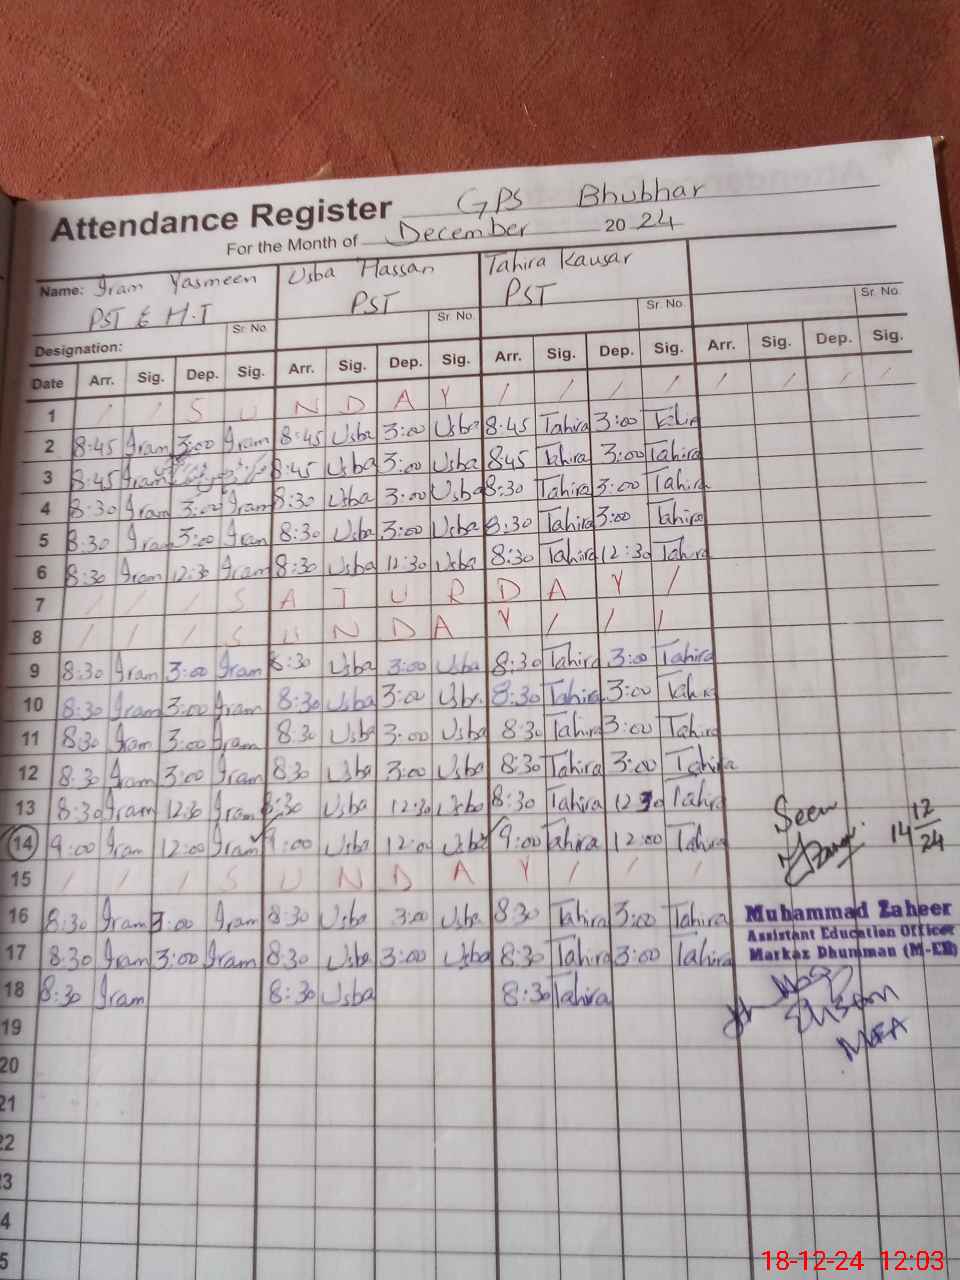 Attendance Register GPS Bhubhar
For the Month of December 20 24
Name: Iram Yasmeen Usba Hassan Tahira Kausar
PST & H.T PST PST
Sr. No. Sr. No. Sr. No. Sr. No.
Designation:
Date Arr. Sig. Dep. Sig. Arr. Sig. Dep. Sig. Arr. Sig. Dep. Sig. Arr. Sig. Dep. Sig.
1 / / S U N D A Y / / / / / / / /
2 8:45 Iram 3:00 Iram 8:45 Usba 3:00 Usba 8:45 Tahira 3:00 Tahira
3 8:45 Iram 8:45 Usba 3:00 Usba 8:45 Tahira 3:00 Tahira
4 8:30 Iram 3:00 Iram 8:30 Usba 3:00 Usba 8:30 Tahira 3:00 Tahira
5 8:30 Iram 3:00 Iram 8:30 Usba 3:00 Usba 8:30 Tahira 3:00 Tahira
6 8:30 Iram 12:30 Iram 8:30 Usba 12:30 Usba 8:30 Tahira 12:30 Tahira
7 / / / S A T U R D A Y /
8 / / / S U N D A Y / / /
9 8:30 Iram 3:00 Iram 8:30 Usba 3:00 Usba 8:30 Tahira 3:00 Tahira
10 8:30 Iram 3:00 Iram 8:30 Usba 3:00 Usba 8:30 Tahira 3:00 Tahira
11 8:30 Iram 3:00 Iram 8:30 Usba 3:00 Usba 8:30 Tahira 3:00 Tahira
12 8:30 Iram 3:00 Iram 8:30 Usba 3:00 Usba 8:30 Tahira 3:00 Tahira
13 8:30 Iram 12:30 Iram 8:30 Usba 12:30 Usba 8:30 Tahira 12:30 Tahira
Seen
14 9:00 Iram 12:00 Iram 9:00 Usba 12:00 Usba 9:00 Tahira 12:00 Tahira
14 12/24
15 / / / S U N D A Y / / /
16 8:30 Iram 3:00 Iram 8:30 Usba 3:00 Usba 8:30 Tahira 3:00 Tahira
Muhammad Zaheer
Assistant Education Officer
17 8:30 Iram 3:00 Iram 8:30 Usba 3:00 Usba 8:30 Tahira 3:00 Tahira
Markaz Dhumman (M-EE)
18 8:30 Iram 8:30 Usba 8:30 Tahira
MEA
19
20
21
22
3
4
5
18-12-24 12:03